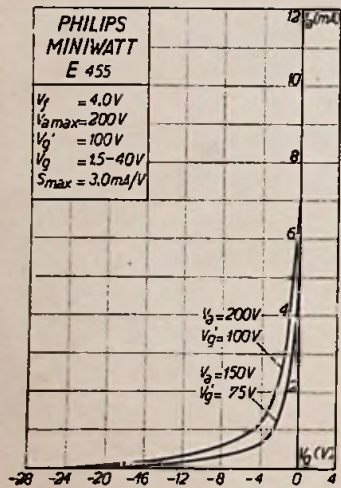 PHILIPS
MINIWATT
E 455
Vf = 4.0V
Vamax=200V
Vg' = 100V
Vg = 1.5-40V
Smax = 3.0mA/V
12
Ia(mA)
10
8
6
4
2
Va=200V
Vg'=100V
Va=150V
Vg'= 75V
Vg(V)
-28 -24 -20 -16 -12 -8 -4 0